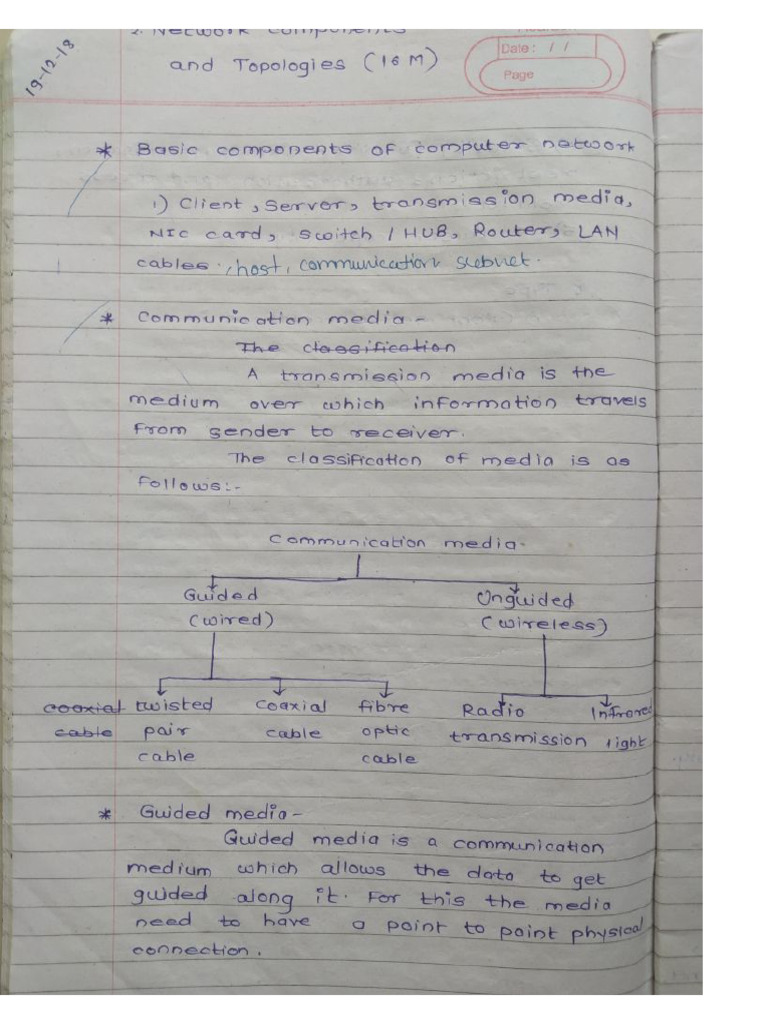 19-12-18
2. Network Components
and Topologies (16M)
Date: / /
Page
* Basic components of computer network
1) Client, Server, transmission media,
NIC card, switch / HUB, Router, LAN
cables, host, communication subnet.
* Communication media -
The classification
A transmission media is the
medium over which information travels
from sender to receiver.
The classification of media is as
follows:-
Communication media.
Guided Unguided
(wired) (wireless)
coaxial twisted coaxial fibre Radio Infrared
cable pair cable optic transmission light
cable cable
* Guided media -
Guided media is a communication
medium which allows the data to get
guided along it. For this the media
need to have a point to point physical
connection.